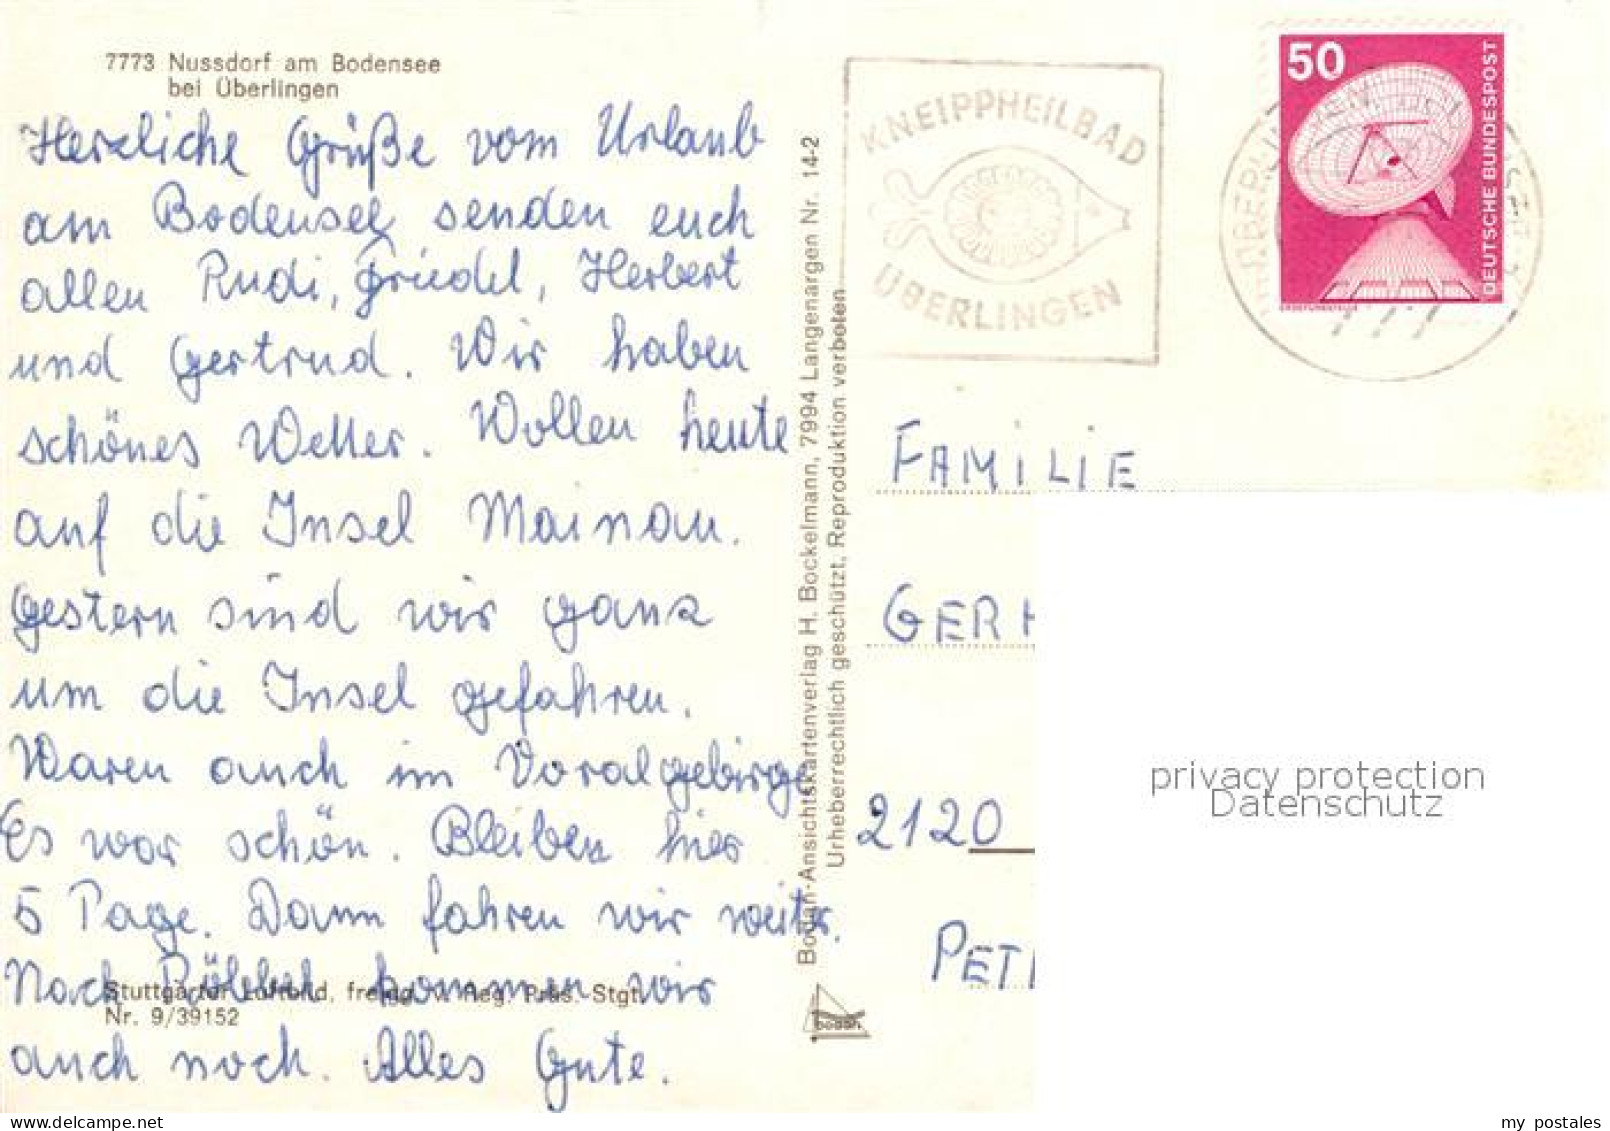 7773 Nussdorf am Bodensee
bei Überlingen
Herzliche Grüße vom Urlaub
am Bodensee senden euch
allen Rudi, Friedel, Herbert
und Gertrud. Wir haben
schönes Wetter. Wollen heute
auf die Insel Mainau.
Gestern sind wir ganz
um die Insel gefahren.
Waren auch im Voralgebirge
Es war schön. Bleiben hier
5 Tage. Dann fahren wir weiter.
Nach kommen wir
auch noch. Alles Gute.
Stuttgarter Luftbild, freigg. v. Reg. Präs. Stgt.
Nr. 9/39152
Bodan-Ansichtskartenverlag H. Bockelmann, 7994 Langenargen Nr. 14-2
Urheberrechtlich geschützt, Reproduktion verboten
bodan
KNEIPPHEILBAD
ÜBERLINGEN
50
DEUTSCHE BUNDESPOST
FAMILIE
GERH
2120
PET
privacy protection
Datenschutz
www.delcampe.net
my_postales